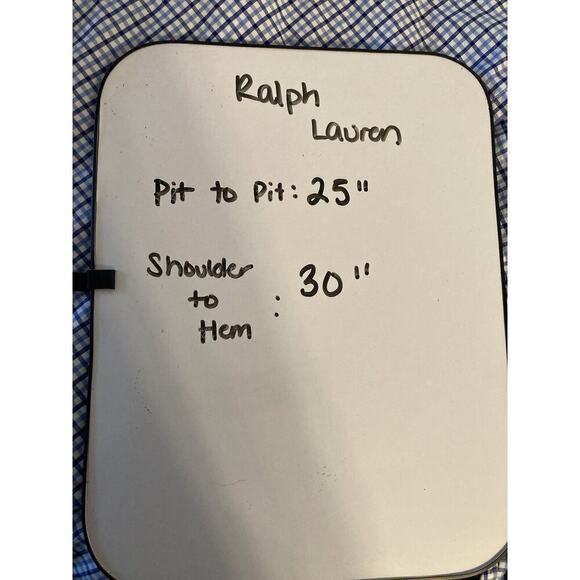 Ralph
Lauren
Pit to Pit: 25"
Shoulder
to : 30"
Hem